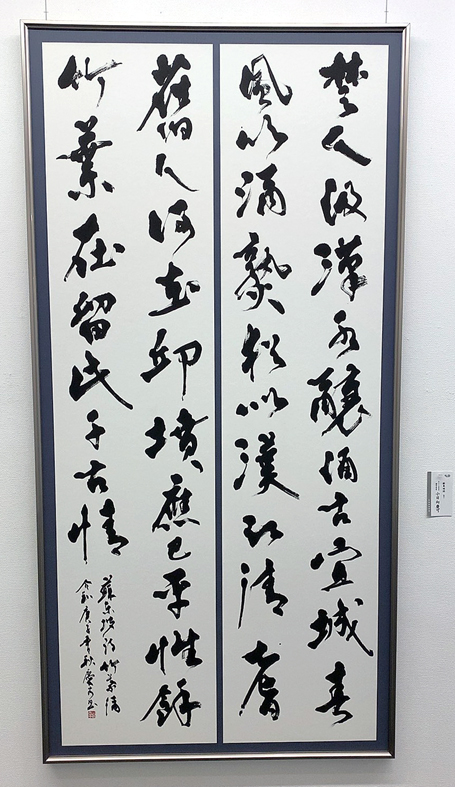 楚人汲漢水釀酒古宜城春
風吹酒熟猶似漢江清耆
舊人何在邱墳應已平惟餘
竹葉在留此千古情
蘇東坡詩竹葉酒
令和庚子季秋